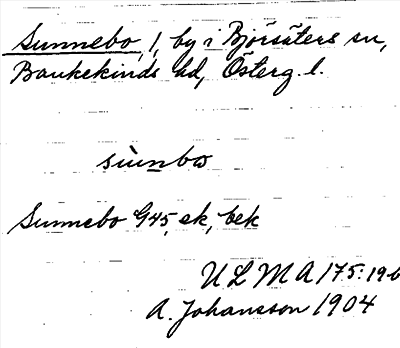 Sunnebo, 1, by i Björsäters sn,
Bankekinds hd, Österg. l.
sùnbo
Sunnebo G45, ek, bek
ULMA 175:19b
A. Johansson 1904